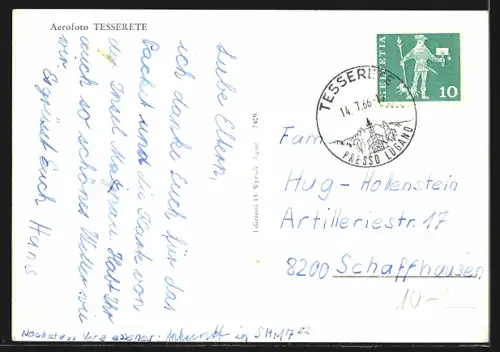 Aerofoto TESSERETE
Liebe Eltern,
ich danke Euch für das
Packet und die Karte von
der Insel Mainau. Habt Ihr
auch so schönes Wetter wie
wir
Es grüsst Euch Hans
Edizioni O. Wyrsch, Agno 7429
HELVETIA
10
TESSERETE
14.7.66
PRESSO LUGANO
Fam
Hug - Hollenstein
Artilleriestr. 17
8200 Schaffhausen
10.-
Ankunft in SH: 17 22